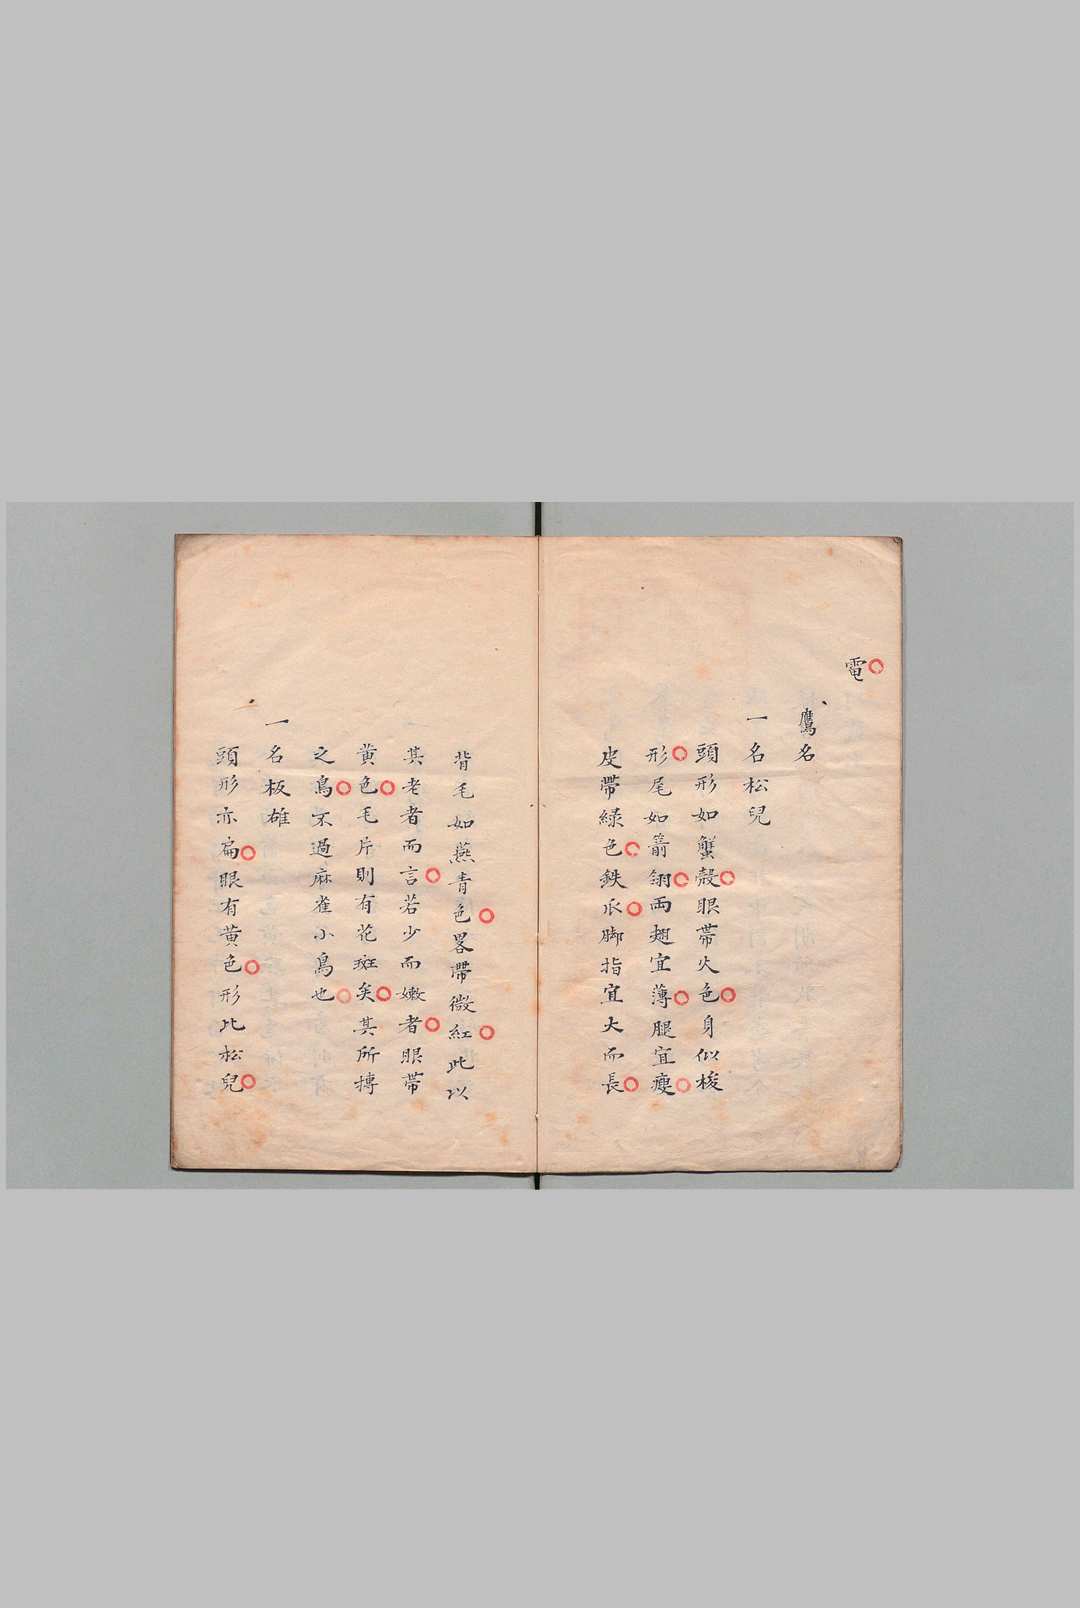 電
鷹名
一名松兒
頭形如蟹殼眼帶火色身似梭
形尾如箭翎兩翅宜薄腿宜瘦
皮帶綠色鉄爪脚指宜大而長
背毛如燕青色畧帶微紅此以
其老者而言若少而嫩者眼帶
黄色毛片則有花斑矣其所摶
之鳥不過麻雀小鳥也
一名板雄
頭形亦扁眼有黄色形比松兒